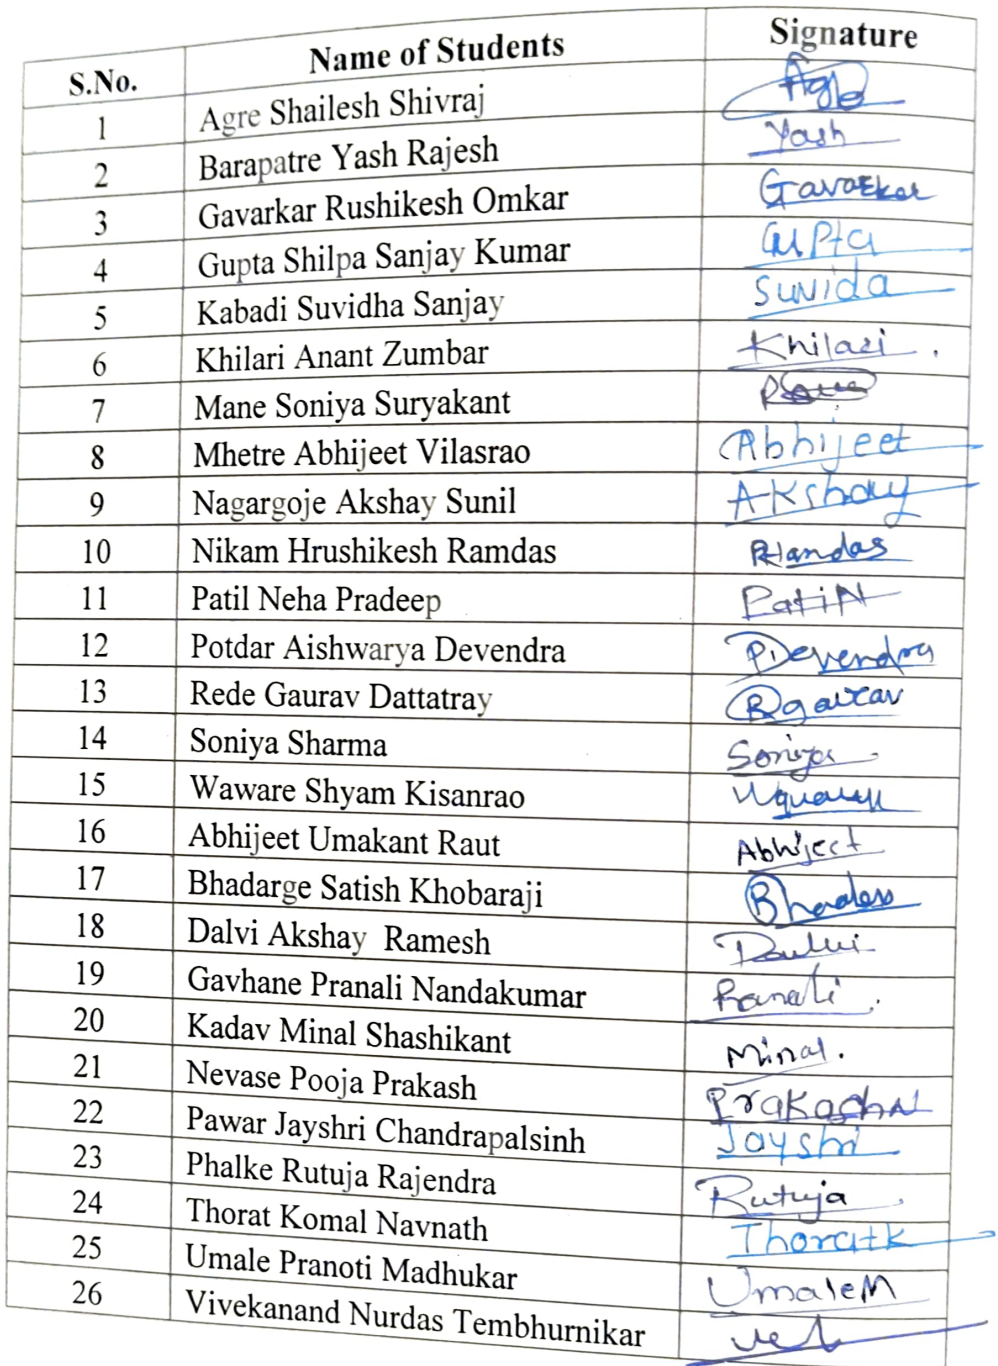 S.No. Name of Students Signature
1 Agre Shailesh Shivraj Agre
2 Barapatre Yash Rajesh Yash
3 Gavarkar Rushikesh Omkar Gavarkar
4 Gupta Shilpa Sanjay Kumar Gupta
5 Kabadi Suvidha Sanjay Suvida
6 Khilari Anant Zumbar Khilari.
7 Mane Soniya Suryakant
8 Mhetre Abhijeet Vilasrao Abhijeet
9 Nagargoje Akshay Sunil Akshay
10 Nikam Hrushikesh Ramdas
11 Patil Neha Pradeep PatilN
12 Potdar Aishwarya Devendra P.Devendra
13 Rede Gaurav Dattatray Rgaurav
14 Soniya Sharma Soniya
15 Waware Shyam Kisanrao
16 Abhijeet Umakant Raut Abhijeet
17 Bhadarge Satish Khobaraji
18 Dalvi Akshay Ramesh Dalvi
19 Gavhane Pranali Nandakumar Pranali.
20 Kadav Minal Shashikant Minal.
21 Nevase Pooja Prakash PrakashN
22 Pawar Jayshri Chandrapalsinh Jayshri
23 Phalke Rutuja Rajendra Rutuja
24 Thorat Komal Navnath ThoratK
25 Umale Pranoti Madhukar UmaleM
26 Vivekanand Nurdas Tembhurnikar